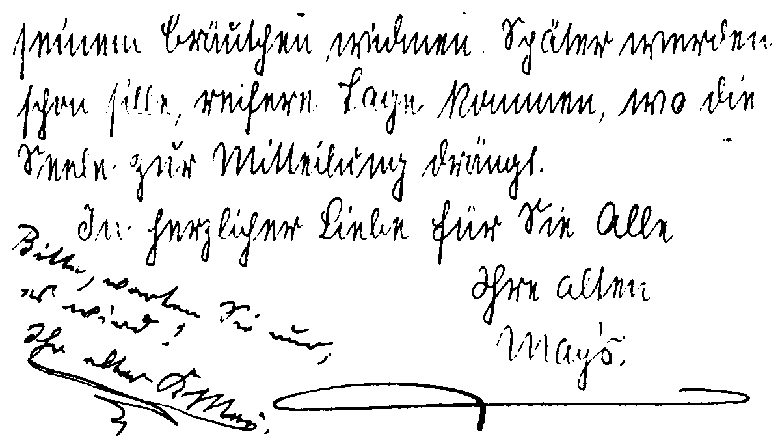 seinem Bräutchen widmen. Später werden
schon stille, reifere Tage kommen, wo die
Seele zur Mitteilung drängt.
In herzlicher Liebe für Sie Alle
Ihre alten
May's.
Bitte, warten Sie nur,
es wird!
Ihr alter K. May.